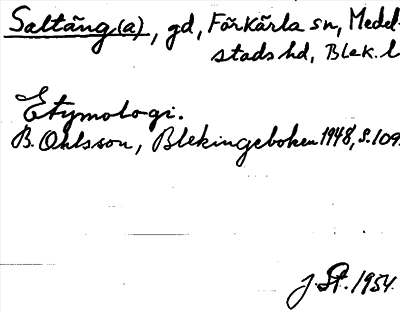 Saltäng(a), gd, Förkärla sn, Medel-
stads hd, Blek. l
Etymologi.
B. Ohlsson, Blekingeboken 1948, s. 109.
J. St. 1954.